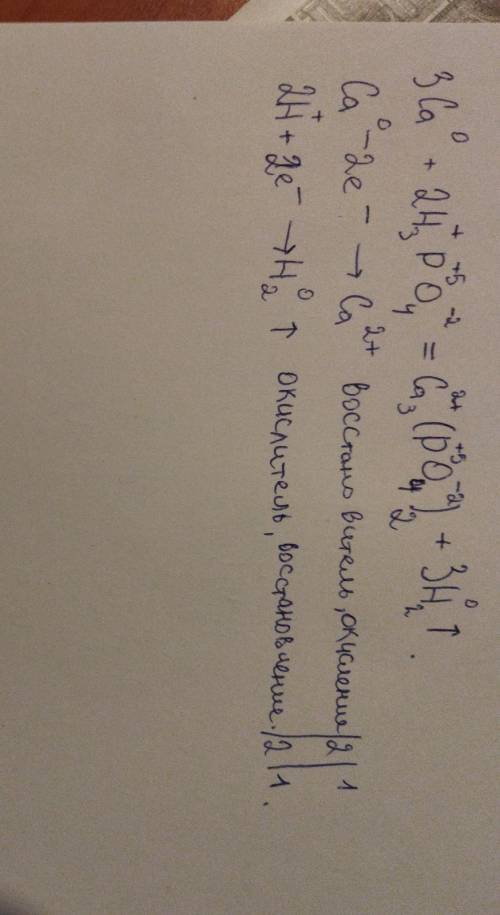 3Ca⁰ + 2H₃⁺P⁺⁵O₄⁻² = Ca₃²⁺(P⁺⁵O₄⁻²)₂ + 3H₂⁰↑.
Ca⁰ - 2e⁻ → Ca²⁺ восстановитель, окисление | 2 | 1
2H⁺ + 2e⁻ → H₂⁰↑ окислитель, восстановление. | 2 | 1.